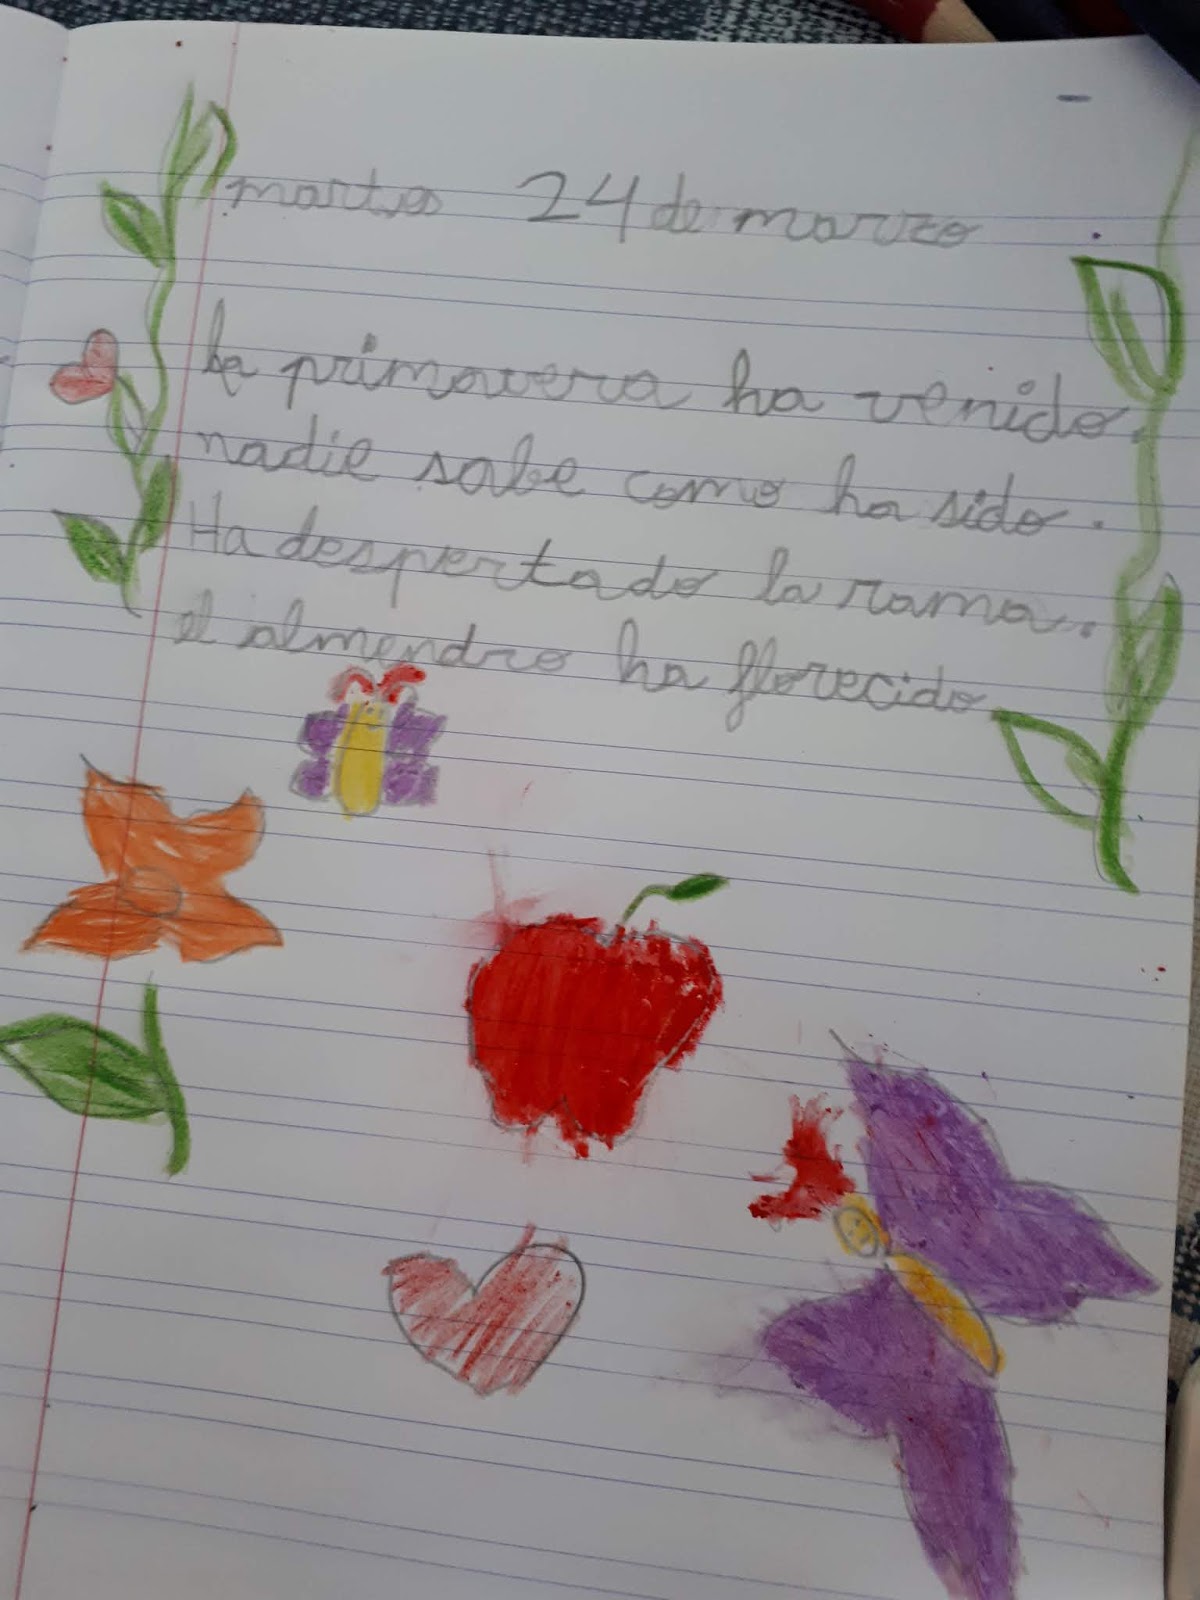 martes 24 de marzo
La primavera ha venido.
nadie sabe como ha sido.
Ha despertado la rama.
el almendro ha florecido